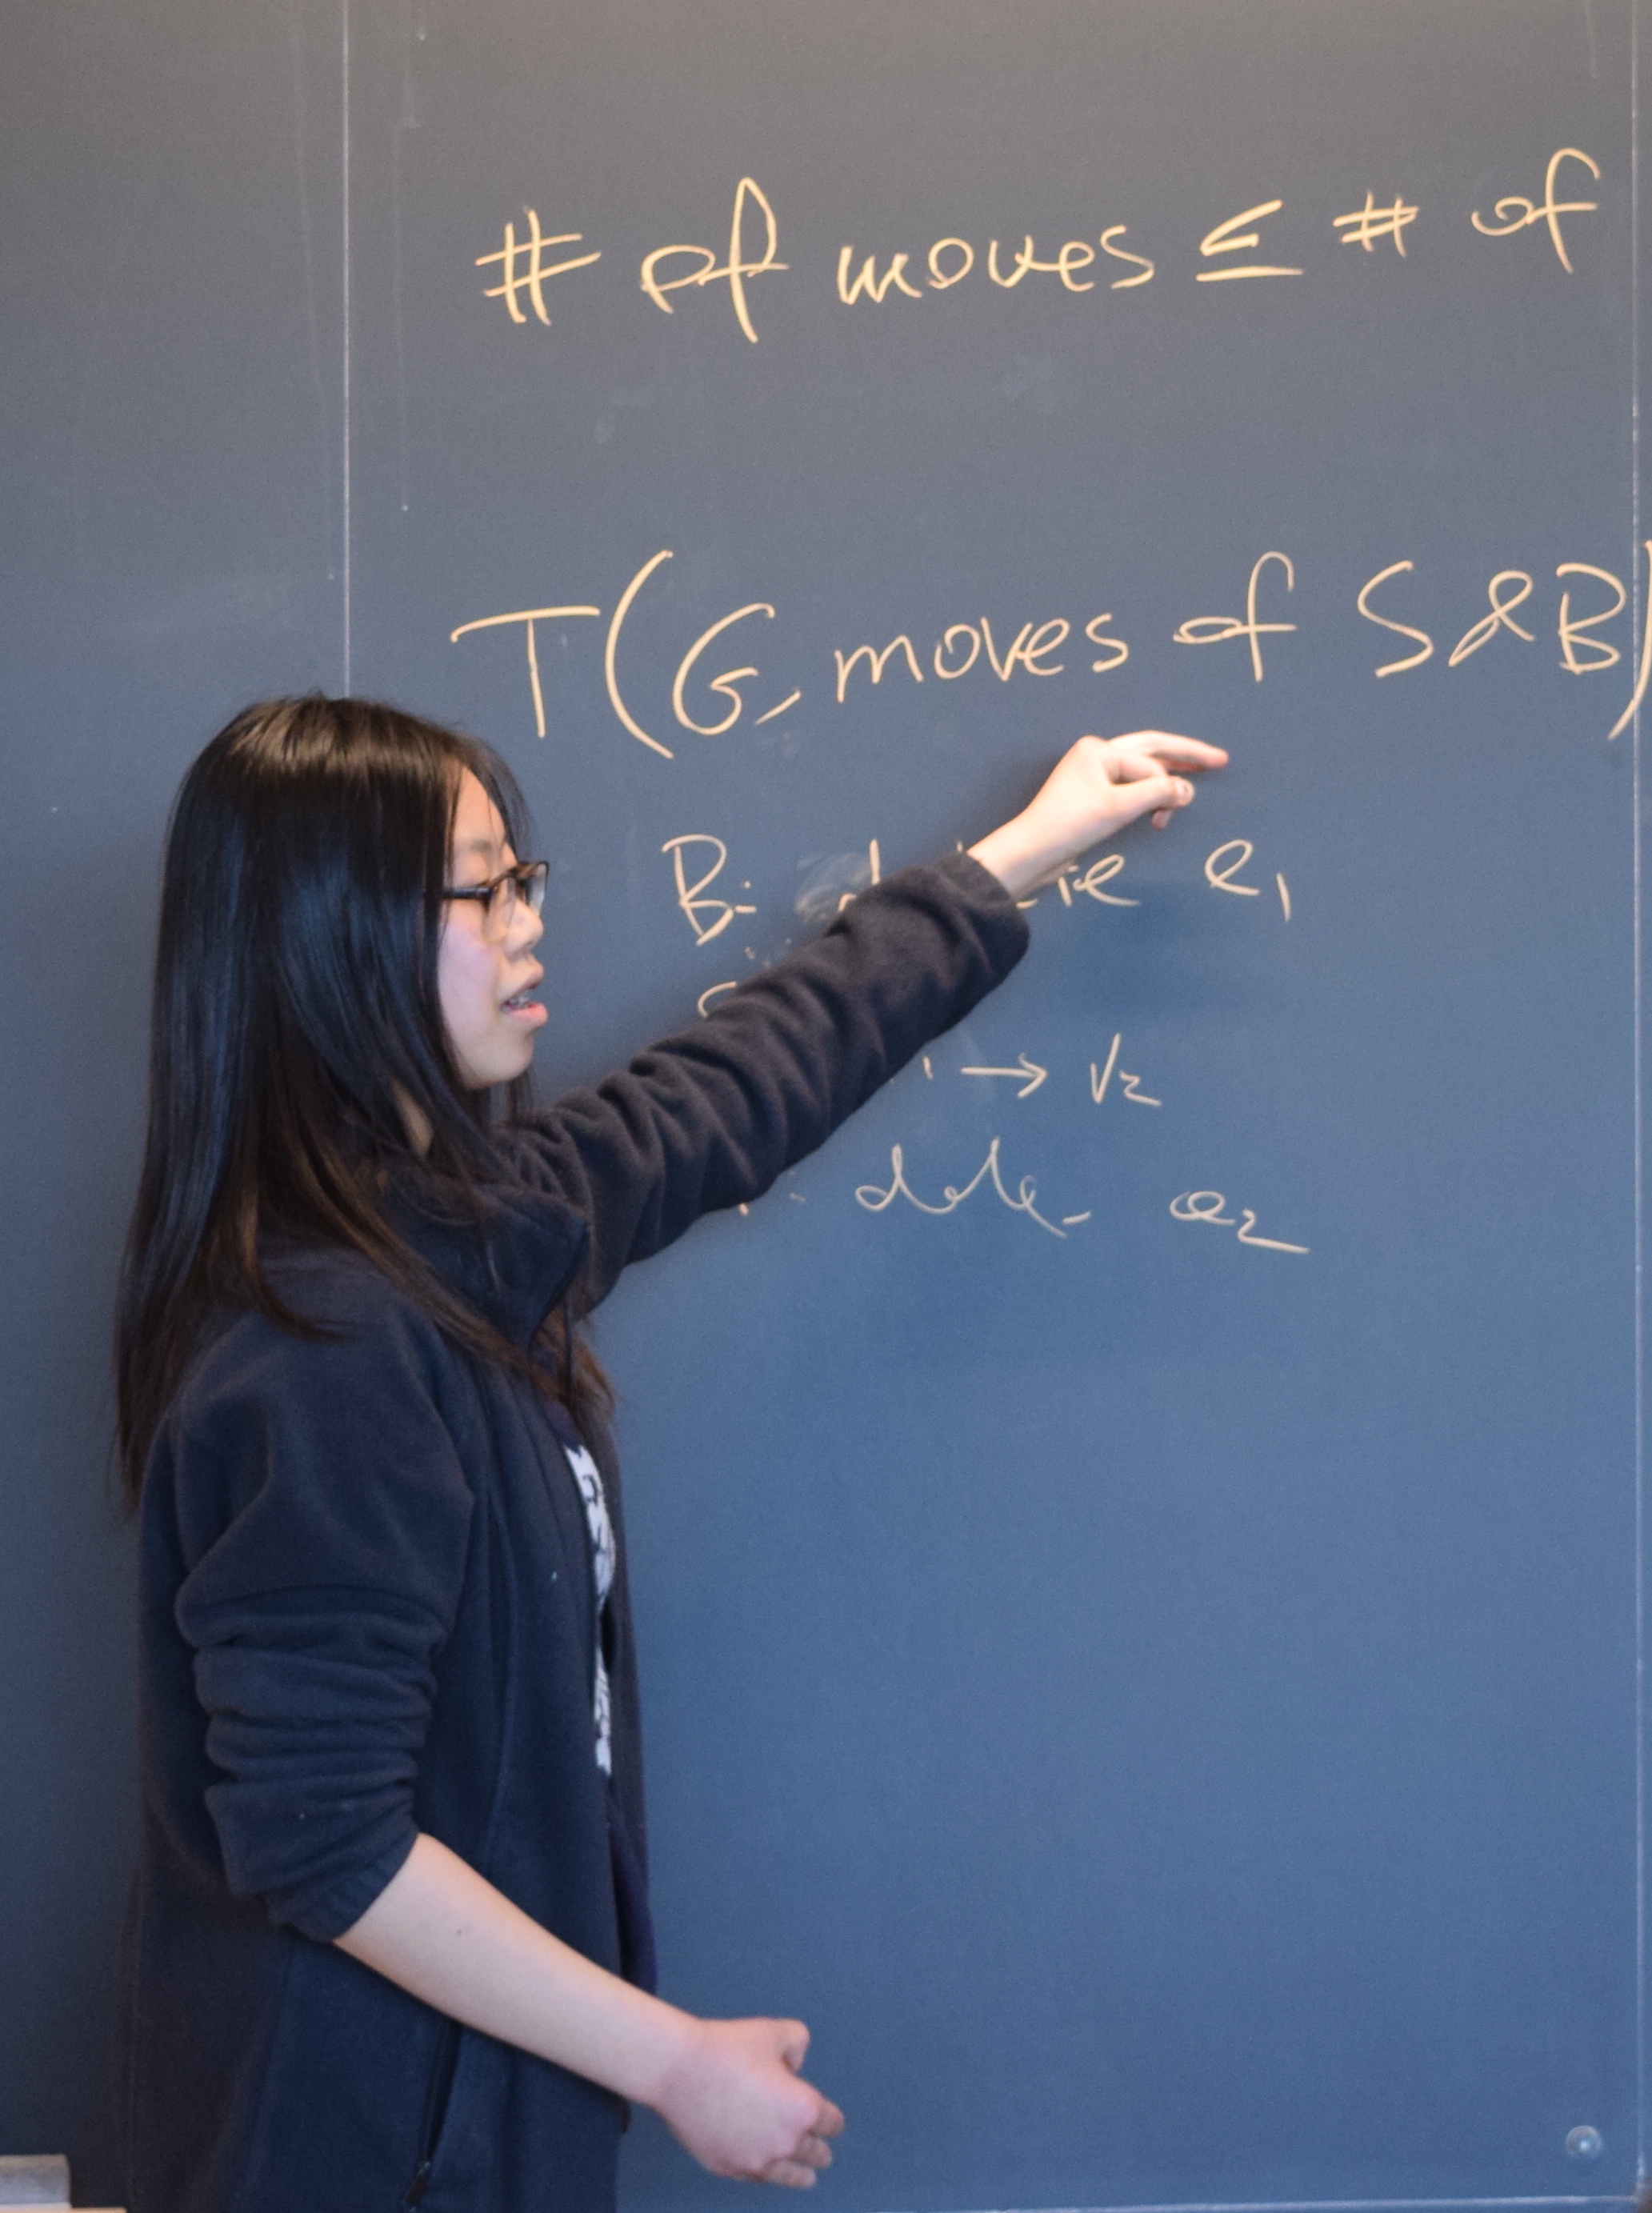 # of moves ≤ # of
T(G, moves of S&B)
B: e₁
→ v₂
delete e₂